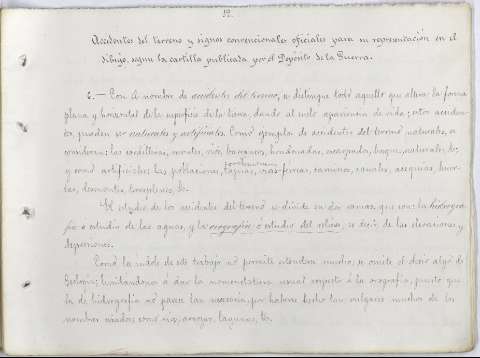 12.
Accidentes del terreno y signos convencionales oficiales para su representación en el
dibujo, según la cartilla publicada por el Depósito de la Guerra.
2.— Con el nombre de accidentes del terreno, se distingue todo aquello que altera la forma
plana y horizontal de la superficie de la tierra, dando al suelo apariencia de vida; estos acciden-
tes, pueden ser naturales y artificiales. Como ejemplo de accidentes del terreno naturales, se
consideran: las cordilleras, montes, ríos, barrancos, hondonadas, bosques, naturales, &;
y como artificiales: las poblaciones, tapias, vías-férreas, caminos, canales, acequias, huer-
tas, desmontes, terraplenes, &.
El estudio de los accidentes del terreno se divide en dos ramas, que son: la hidrogra-
fía o estudio de las aguas, y la orografía, ó estudio del relieve, es decir de las elevaciones y
depresiones.
Como la índole de este trabajo no permite extenderse mucho, se omite el decir algo de
Geología; limitándonos á dar la nomenclatura usual respecto á la orografía, puesto que
la de hidrografía no parece tan necesaria, por haberse hecho tan vulgares muchos de los
nombres usados como río, arroyo, lagunas, &.